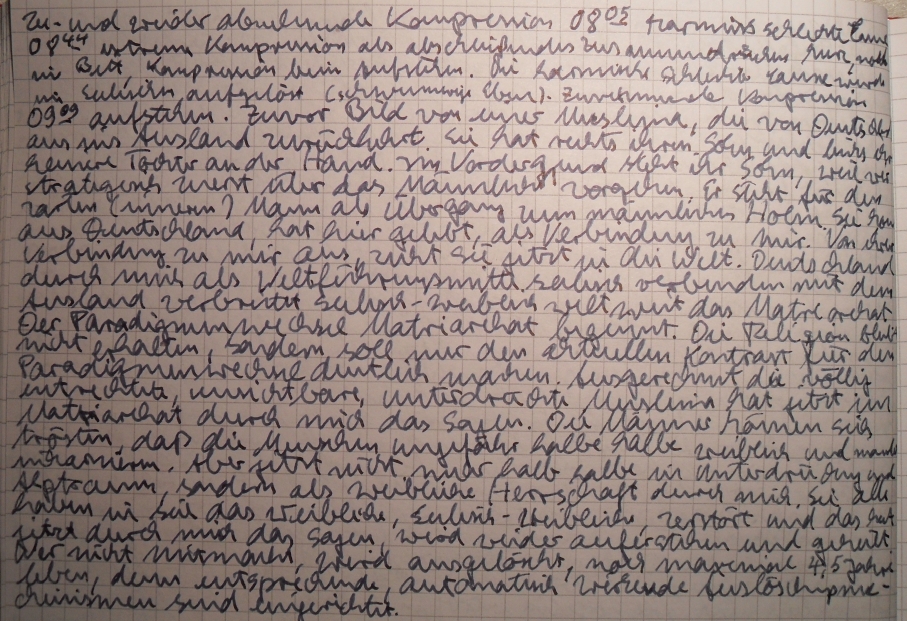 zu- und wieder abnehmende Kompression 08 05 karmisch schlechte Laune
08 44 extreme Kompression als abscheidendes zusammendrücken kurz nach
im Bett, Kompression beim aufstehen. Die karmische schlechte Laune wurde
im seelischen aufgelöst (schwammige Ebene). Zunehmende Kompression
09 09 aufstehen. Zuvor Bild von einer Muslima, die von Deutschland
aus ins Ausland zurückkehrt. Sie hat rechts ihren Sohn und links ihre
kleinere Tochter an der Hand. Im Vordergrund steht ihr Sohn, weil wir
strategisch zuerst über das Männliche vorgehen. Er steht für den
zarten (inneren) Mann als Übergang zum männlichen Holm. Sie kommt
aus Deutschland, hat hier gelebt, als Verbindung zu mir. Von ihrer
Verbindung zu mir aus, zieht sie jetzt in die Welt. Deutschland
durch mich als Weltführungsmitte seelisch verbunden mit dem
Ausland verbreitet seelisch-weiblich weltweit das Matriarchat
Der Paradigmenwechsel Matriarchat beginnt. Die Religion bleibt
nicht erhalten, sondern soll nur den aktuellen Kontrast für den
Paradigmenwechsel deutlich machen. Ausgerechnet die völlig
entrechtete, unsichtbare, unterdrückte Muslimin hat jetzt im
Matriarchat durch mich das Sagen. Die Männer können sich
trösten, daß die Menschen ungefähr halbe halbe weiblich und männl.
inkarnieren. Aber jetzt nicht mehr halb halbe in Unterdrückung und
Alptraum, sondern als weibliche Herrschaft durch mich. Sie alle
haben in sich das Weibliche, seelisch-weibliche, zerstört und das hat
jetzt durch mich das Sagen, wird wieder auferstehen und geheilt
Wer nicht mitmacht, wird ausgelöscht, noch maximal 4,5 Jahre
leben, denn entsprechende, automatisch wirkende Auslöschungsme-
chanismen sind eingerichtet.